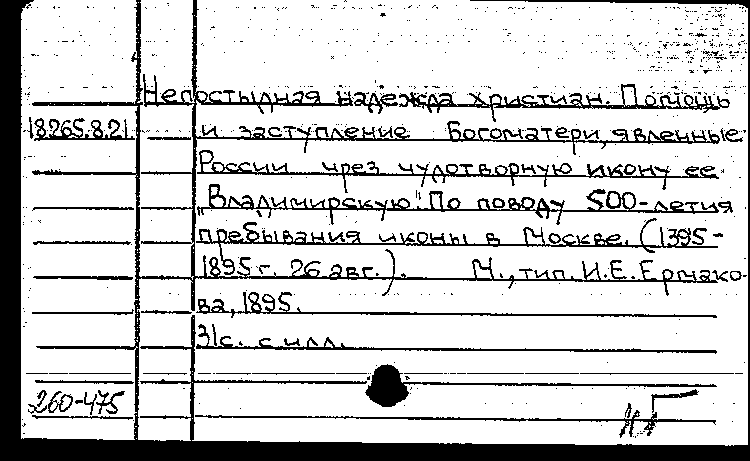 Непостыдная надежда христиан. Помощь
18265.8.21. и заступление Богоматери, явленные
России чрез чудотворную икону ее
„Владимирскую". По поводу 500-летия
пребывания иконы в Москве. (1395-
1895 г. 26 авг.). М., тип. И.Е. Ермако-
ва, 1895.
31с. с илл.
260-475